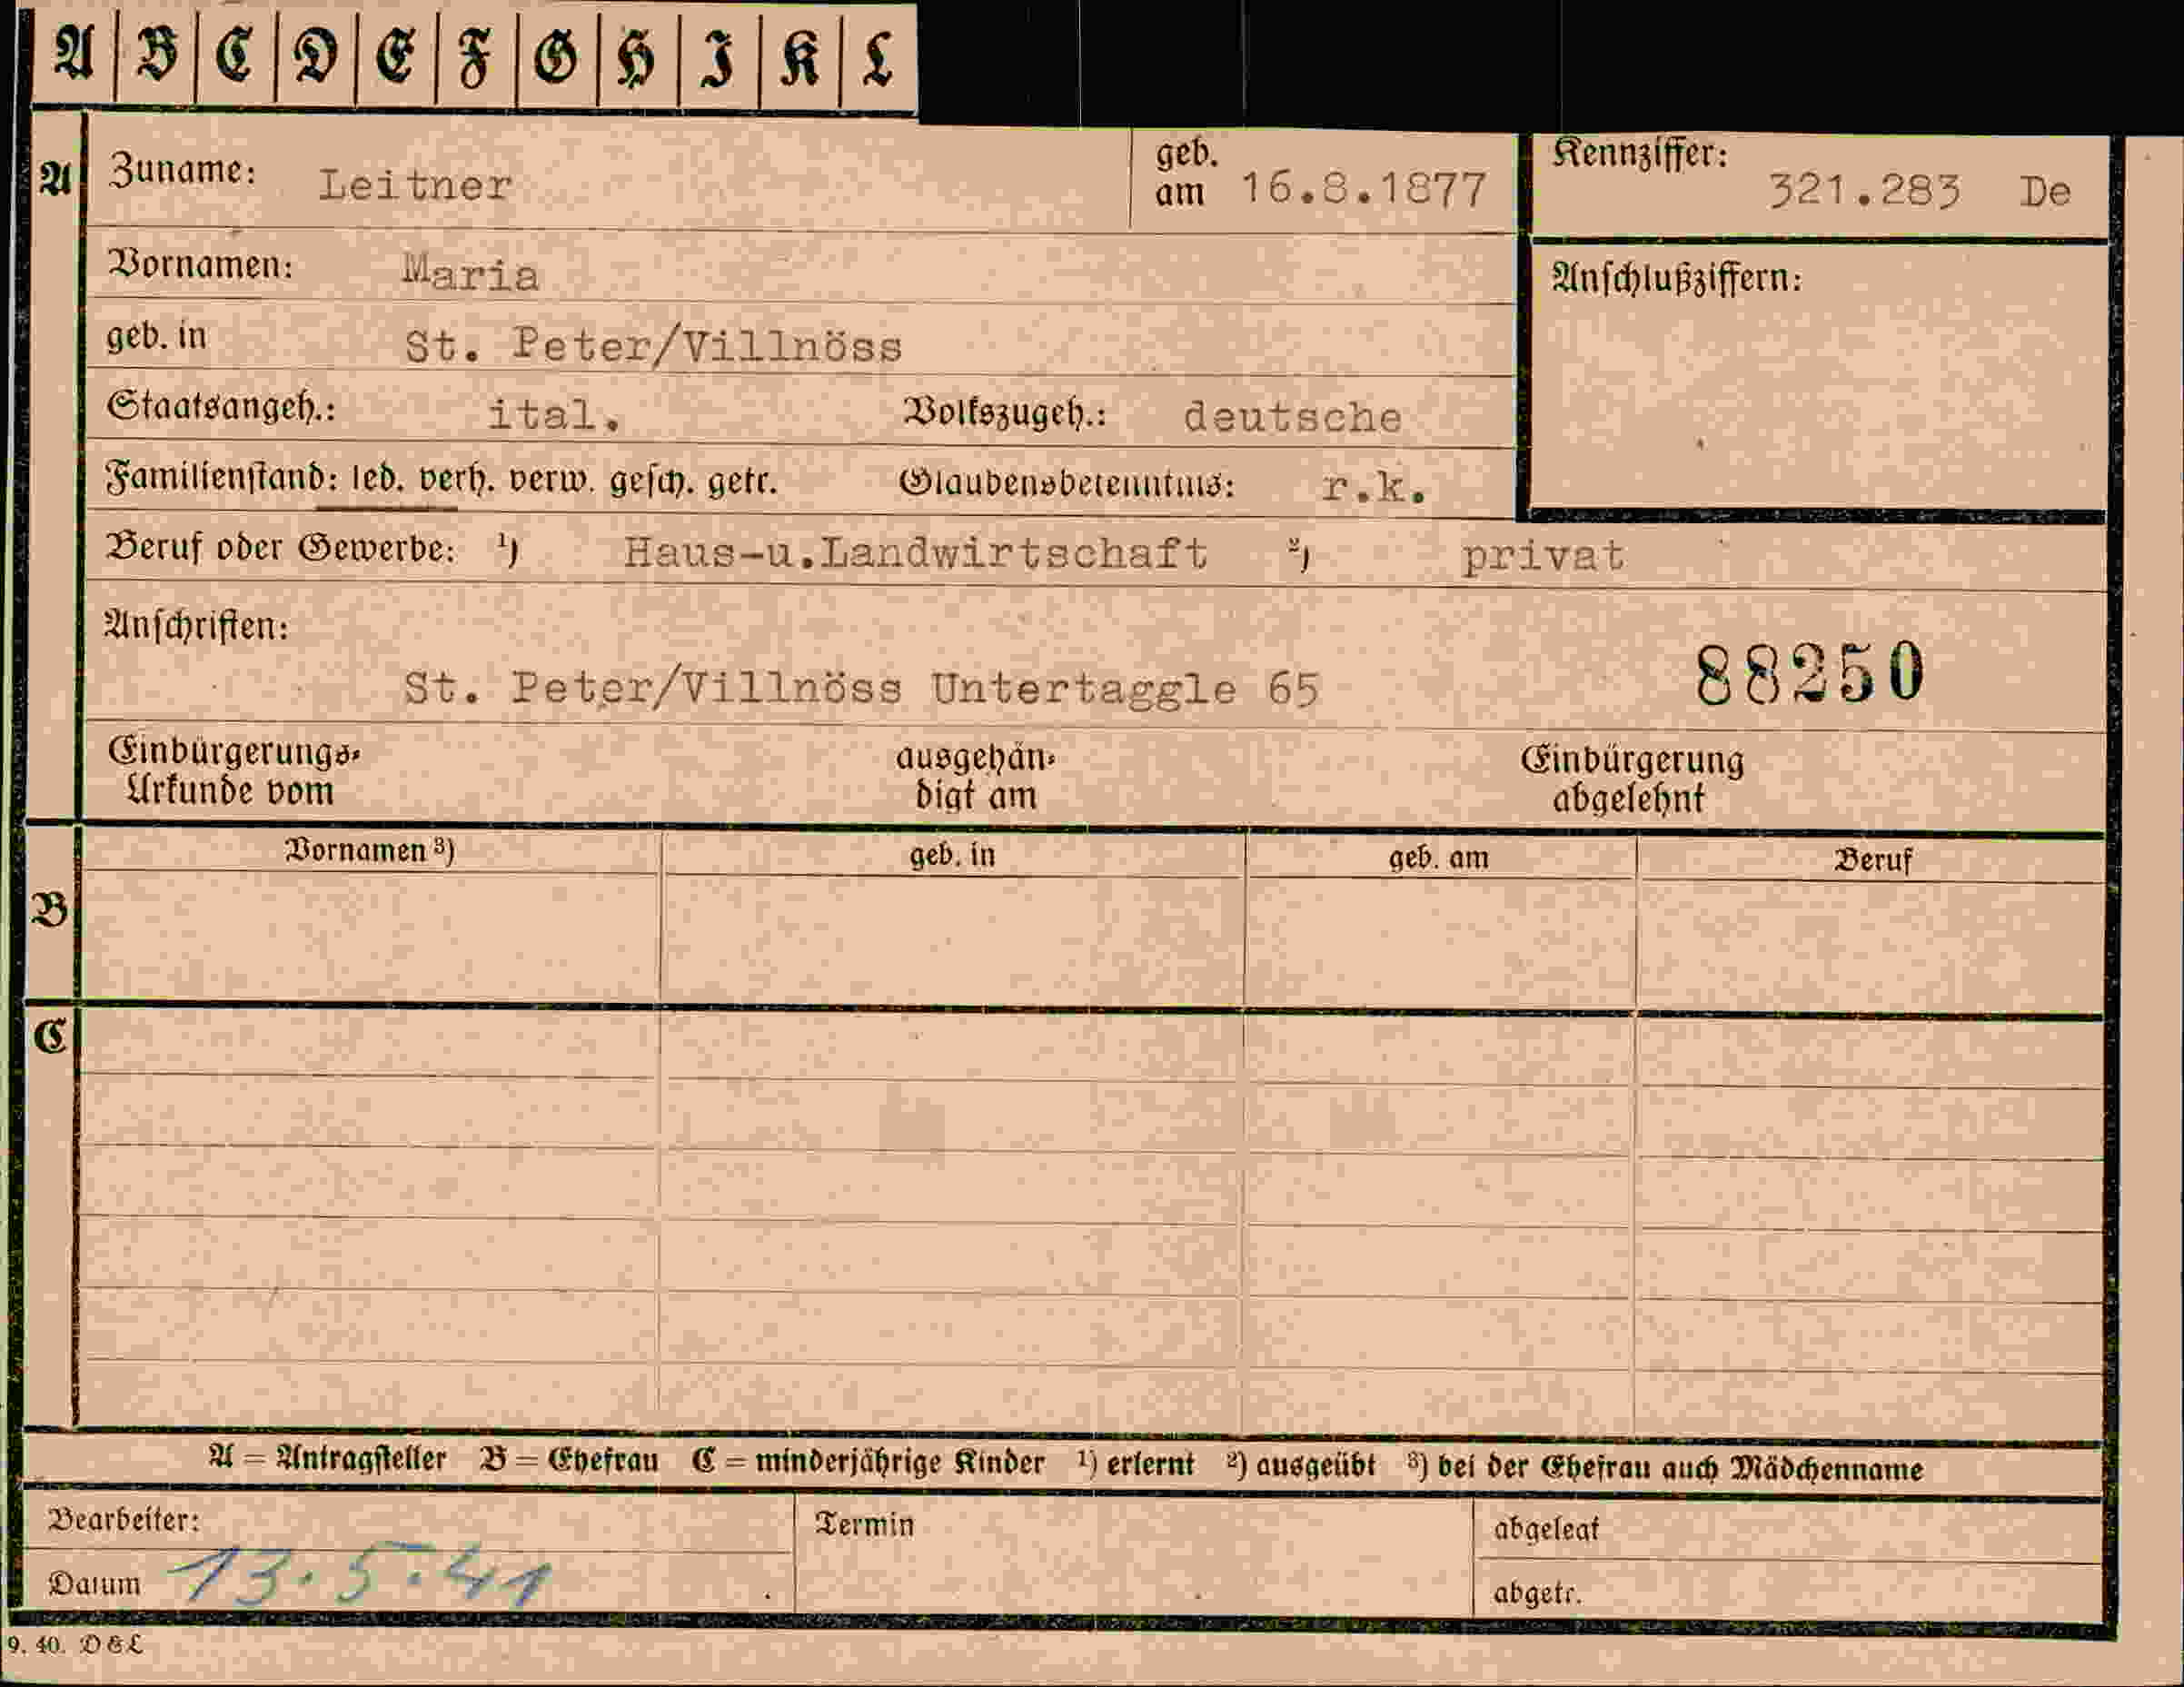 A B C D E F G H I K L
A Zuname: Leitner geb. am 16.8.1877 Kennziffer: 321.283 De
Vornamen: Maria Anschlußziffern:
geb. in St. Peter/Villnöss
Staatsangeh.: ital. Volkszugeh.: deutsche
Familienstand: led. verh. verw. gesch. getr. Glaubensbekenntnis: r.k.
Beruf oder Gewerbe: ¹) Haus-u.Landwirtschaft ²) privat
Anschriften:
88250
St. Peter/Villnöss Untertaggle 65
Einbürgerungs- ausgehän- Einbürgerung
Urkunde vom digt am abgelehnt
Vornamen ³) geb. in geb. am Beruf
B
C
A = Antragsteller B = Ehefrau C = minderjährige Kinder ¹) erlernt ²) ausgeübt ³) bei der Ehefrau auch Mädchenname
Bearbeiter: Termin abgelegt
Datum 13.5.41 abgetr.
9. 40. D & L